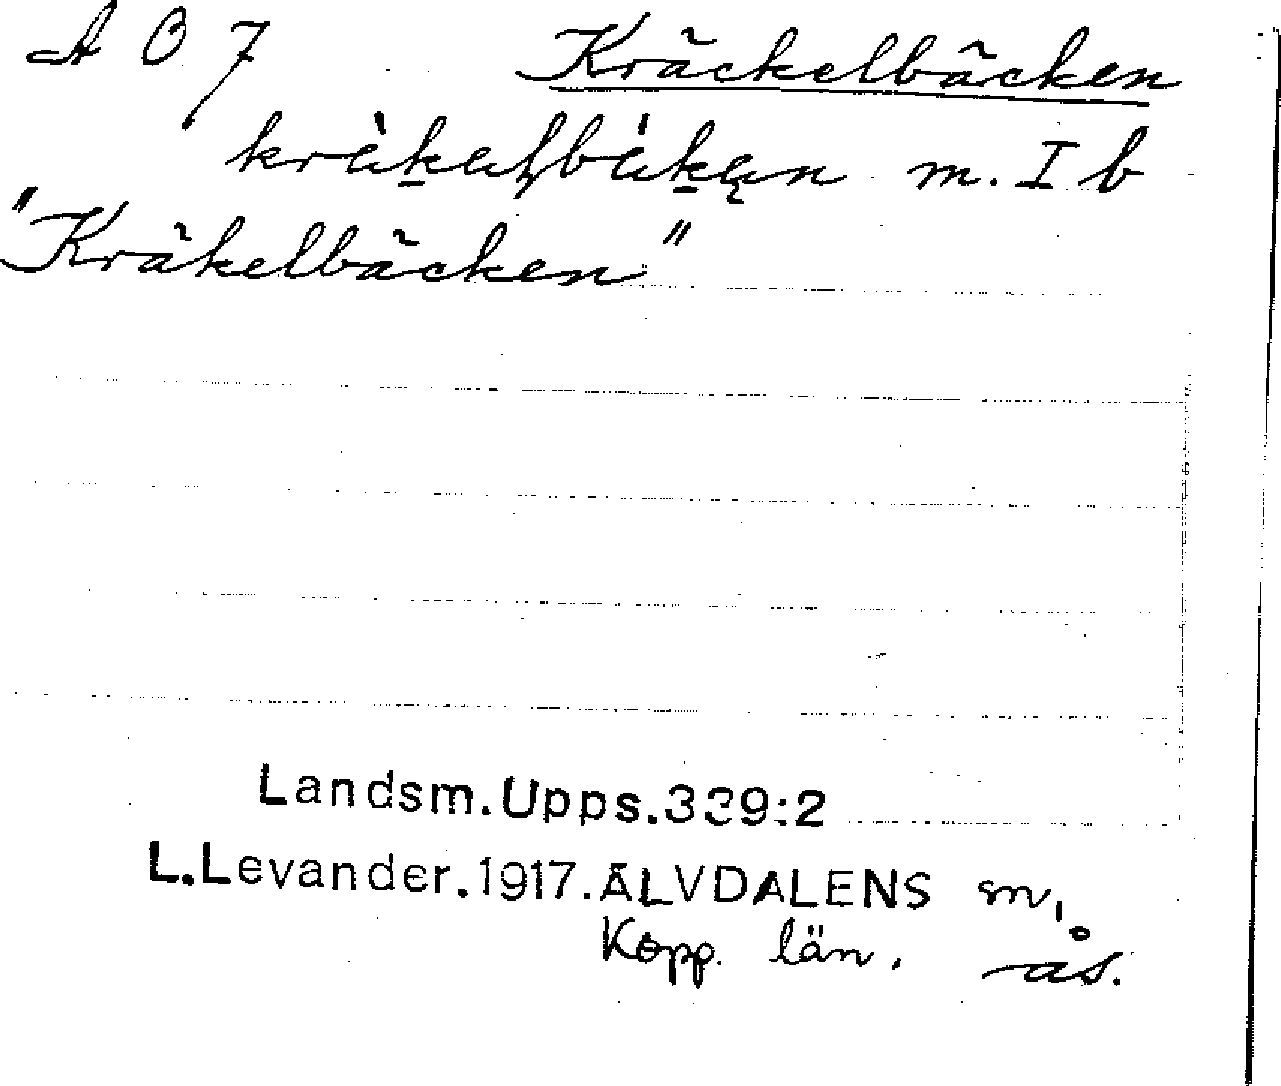 A O 7 Kräckelbäcken
m. I b
"Kräkelbäcken"
Landsm.Upps.339:2
L.Levander.1917.ÄLVDALENS sn,
Kopp. län. ås.